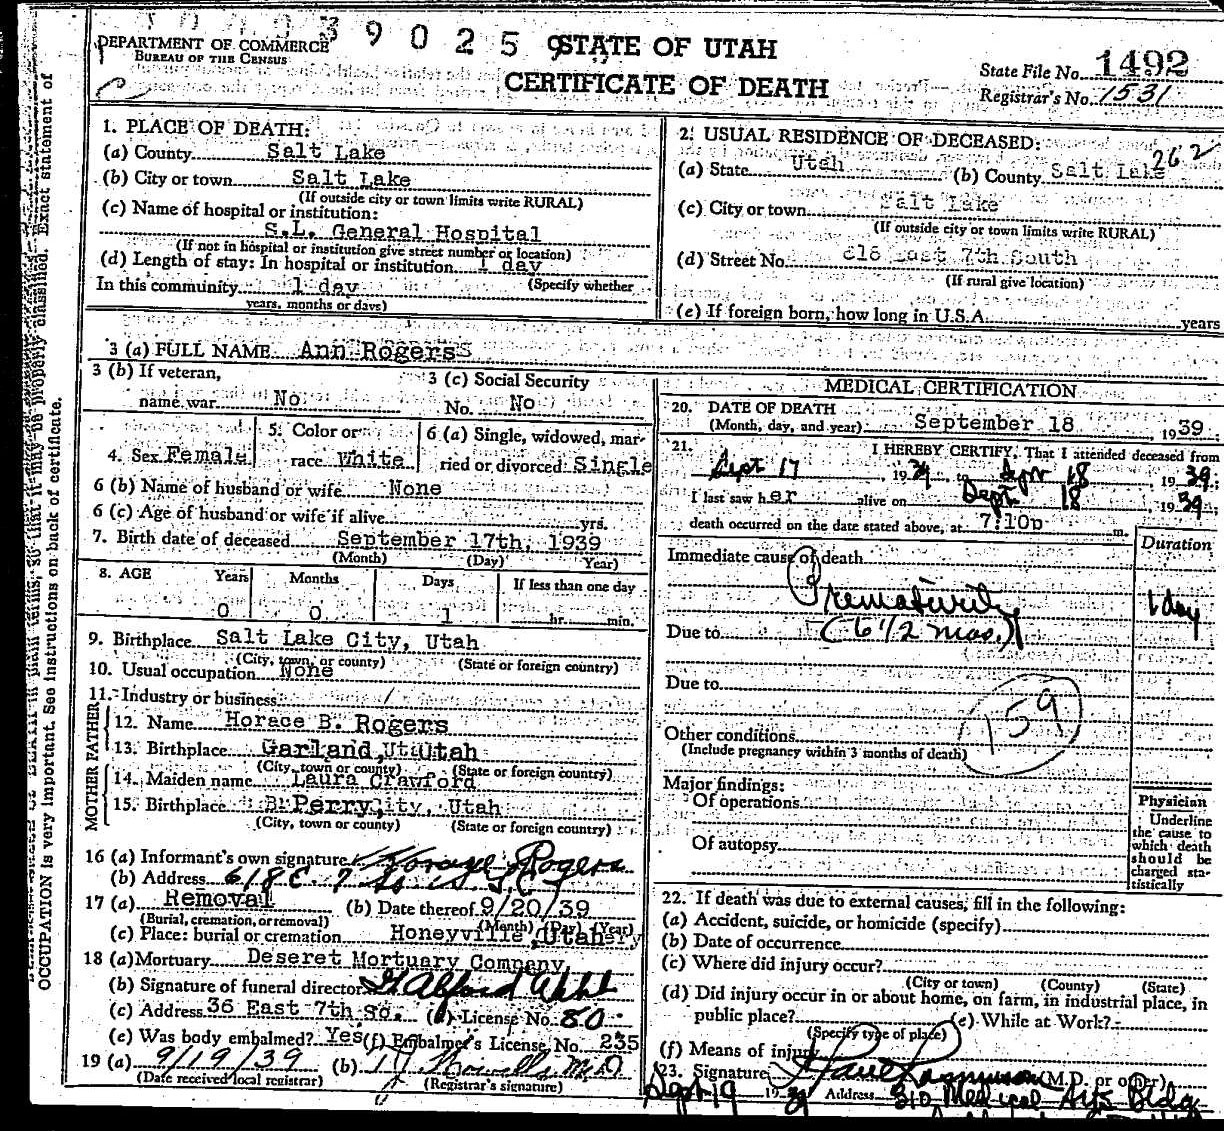 39025 9
DEPARTMENT OF COMMERCE
BUREAU OF THE CENSUS
STATE OF UTAH
CERTIFICATE OF DEATH
State File No. 1492
Registrar's No. 1531
1. PLACE OF DEATH:
(a) County Salt Lake
(b) City or town Salt Lake
(If outside city or town limits write RURAL)
(c) Name of hospital or institution:
S.L. General Hospital
(If not in hospital or institution give street number or location)
(d) Length of stay: In hospital or institution 1 day
(Specify whether
In this community 1 day
years, months or days)
2. USUAL RESIDENCE OF DECEASED:
262
(a) State Utah (b) County Salt Lake
(c) City or town Salt Lake
(If outside city or town limits write RURAL)
(d) Street No. 618 East 7th South
(If rural give location)
(e) If foreign born, how long in U.S.A. years
3 (a) FULL NAME Ann Rogers
3 (b) If veteran,
name war No
3 (c) Social Security
No. No
4. Sex Female
5. Color or
race White
6 (a) Single, widowed, mar-
ried or divorced Single
6 (b) Name of husband or wife None
6 (c) Age of husband or wife if alive yrs.
7. Birth date of deceased September 17th, 1939
(Month) (Day) (Year)
8. AGE Years Months Days If less than one day
0 0 1 hr. min.
9. Birthplace Salt Lake City, Utah
(City, town, or county) (State or foreign country)
10. Usual occupation None
11. Industry or business
FATHER
12. Name Horace B. Rogers
13. Birthplace Garland, Utah
(City, town or county) (State or foreign country)
MOTHER
14. Maiden name Laura Crawford
15. Birthplace Perry City, Utah
(City, town or county) (State or foreign country)
16 (a) Informant's own signature Horace Rogers
(b) Address 618 E. 7 So.
17 (a) Removal (b) Date thereof 9/20/39
(Burial, cremation, or removal) (Month) (Day) (Year)
(c) Place: burial or cremation Honeyville, Utah
18 (a) Mortuary Deseret Mortuary Company
(b) Signature of funeral director
(c) Address 36 East 7th So. (d) License No. 80
(e) Was body embalmed? Yes (f) Embalmer's License No. 235
19 (a) 9/19/39 (b)
(Date received local registrar) (Registrar's signature)
MEDICAL CERTIFICATION
20. DATE OF DEATH
(Month, day, and year) September 18, 1939;
21. I HEREBY CERTIFY, That I attended deceased from
Sept 17, 1939 to Sept 18, 1939;
I last saw her alive on Sept 18, 1939;
death occurred on the date stated above, at 7:10p m.
Duration
Immediate cause of death
Prematurity 1 day
Due to (6 1/2 mos.)
Due to
159
Other conditions
(Include pregnancy within 3 months of death)
Major findings:
Of operations
Of autopsy
Physician
Underline
the cause to
which death
should be
charged sta-
tistically
22. If death was due to external causes, fill in the following:
(a) Accident, suicide, or homicide (specify)
(b) Date of occurrence
(c) Where did injury occur?
(City or town) (County) (State)
(d) Did injury occur in or about home, on farm, in industrial place, in
public place? (e) While at Work?
(Specify type of place)
(f) Means of injury
23. Signature (M.D. or other)
Sept 19 1939 Address 310 Medical Arts Bldg
OCCUPATION is very important. See instructions on back of certificate.
properly classified. Exact statement of